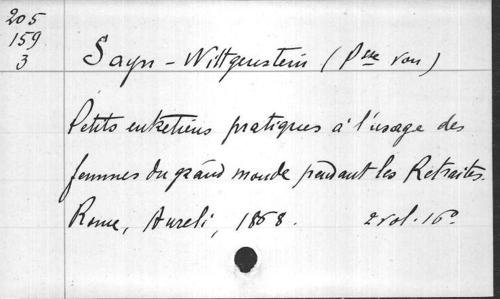 205
159
3
Sayn-Wittgenstein (Psse von)
Petits entretiens pratiques à l'usage des
femmes du grand monde pendant les Retraites.
Rome, Aureli, 1868. 2 vol. 16º